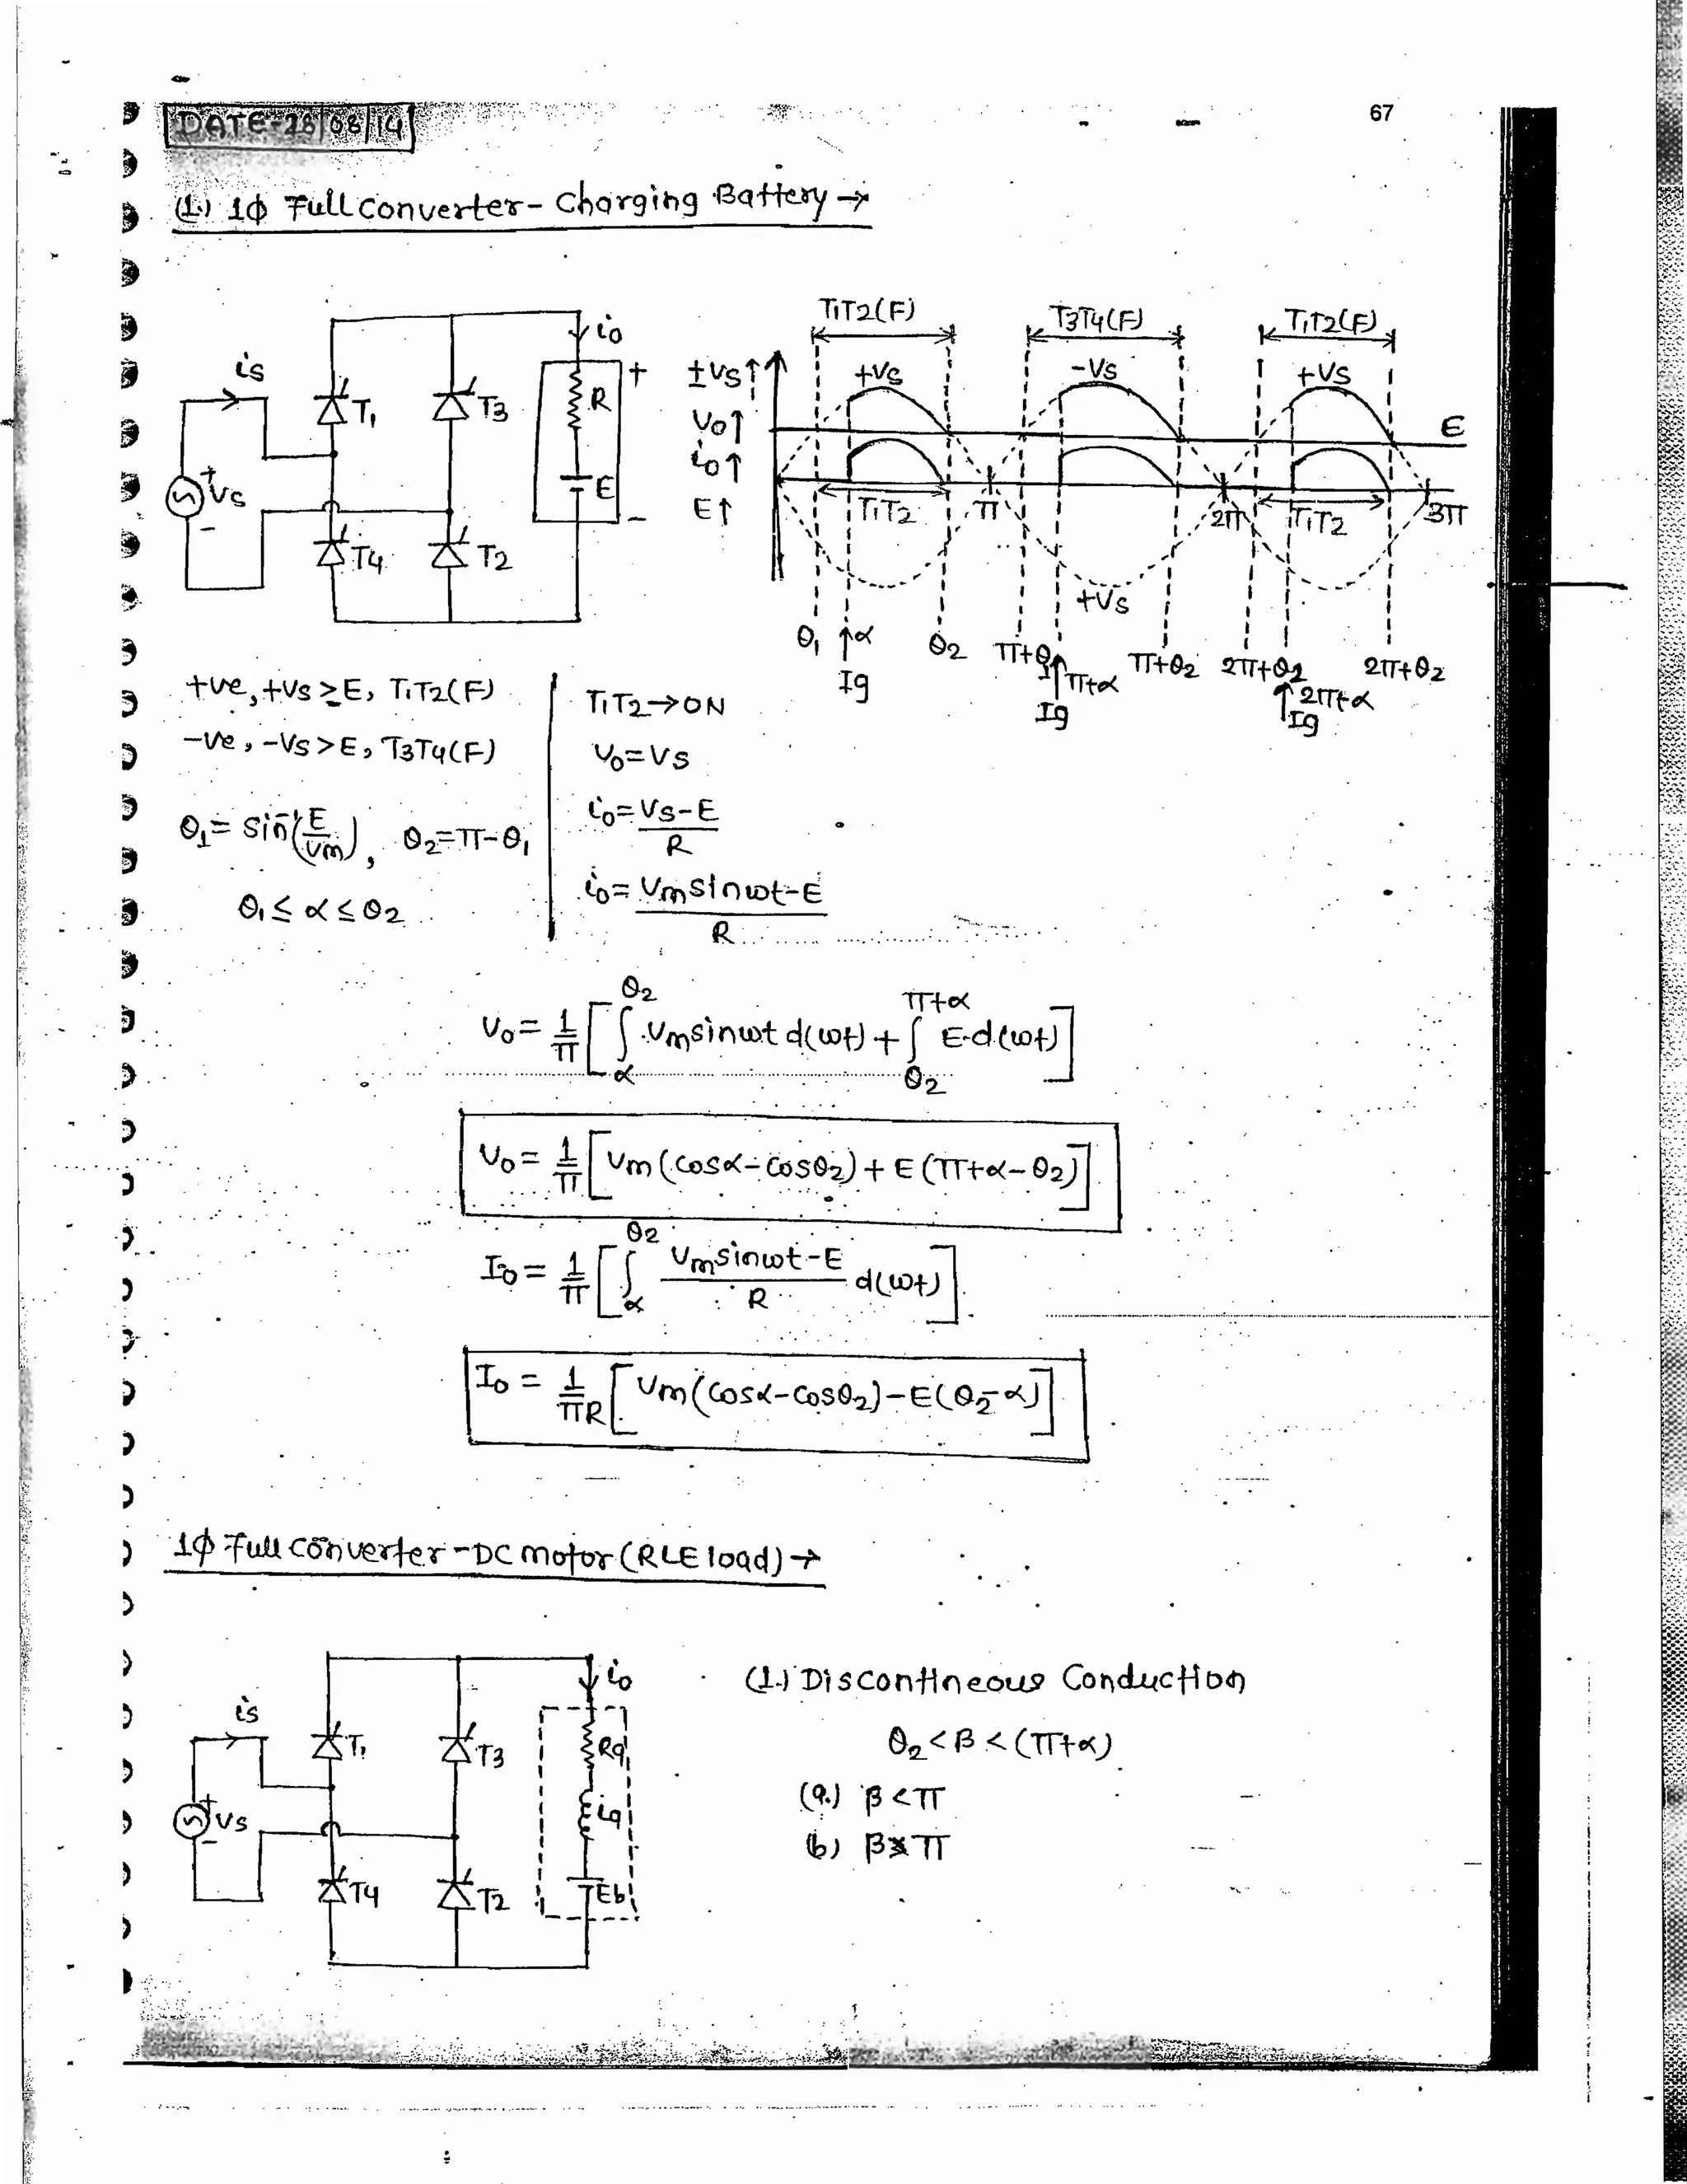 67
DATE-28/08/14
(1.) 1ϕ Full Converter- Charging Battery →
is
+
Vs
-
T1
T3
T4
T2
io
R
E
+
-
T1T2(F)
T3T4(F)
T1T2(F)
±Vs↑
Vo↑
io↑
E↑
+Vs
-Vs
+Vs
E
T1T2
π
2π
T1T2
3π
+Vs
θ1
↑α
Ig
θ2
π+θ1
↑π+α
Ig
π+θ2
2π+θ1
↑2π+α
Ig
2π+θ2
+ve, +Vs ≥ E, T1T2(F)
-ve, -Vs > E, T3T4(F)
θ1 = sin⁻¹(E/Vm), θ2 = π-θ1
θ1 ≤ α ≤ θ2
T1T2 → ON
Vo = Vs
io = Vs-E/R
io = Vmsinωt-E/R
Vo = 1/π [∫α^θ2 Vmsinωt d(ωt) + ∫θ2^π+α E·d(ωt)]
Vo = 1/π [Vm(cosα-cosθ2) + E(π+α-θ2)]
Io = 1/π [∫α^θ2 Vmsinωt-E/R d(ωt)]
Io = 1/πR [Vm(cosα-cosθ2)-E(θ2-α)]
1ϕ Full Converter - DC motor (RLE load) →
is
+
Vs
-
T1
T3
T4
T2
io
Ra
La
Eb
(1.) Discontineous Conduction
θ2 < β < (π+α)
(a.) β < π
(b) β π